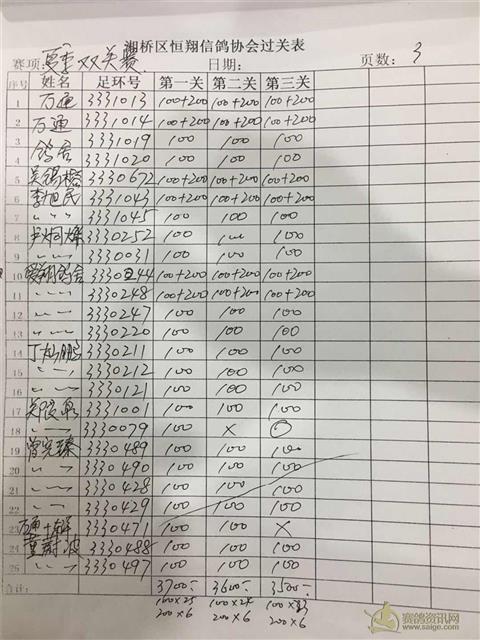 湘桥区恒翔信鸽协会过关表
赛项: 夏季双关赛 日期: 页数: 3
序号 姓名 足环号 第一关 第二关 第三关
1 万通 3331013 100+200 100+200 100+200
2 万通 3331014 100+200 100+200 100+200
3 鸽舍 3331019 100 100 100
4 3331020 100 100 100
5 3330672 100+200 100+200 100+200
6 李旭民 3331043 100+200 100+200 100+200
7 〃 〃 3331045 100 100 100
8 3330252 100 100 100
9 〃 〃 3330031 100 100 100
10 翔鸽舍 3330244 100+200 100+200 100+200
11 〃 〃 3330248 100+200 100+200 100+200
12 〃 〃 3330247 100 100 100
13 〃 〃 3330220 100 100 100
14 丁 鹏 3330211 100 100 100
15 〃 〃 3330212 100 100 100
16 〃 〃 3330121 100 100 100
17 3331001 100 100 100
18 〃 〃 3330079 100 × 〇
19 曾宪臻 3330489 100 100 100
20 〃 〃 3330490 100 100 100
21 〃 〃 3330428 100 100 100
22 〃 〃 3330429 100 100 100
23 万通+ 3330471 100 100 ×
24 董蔚波 3330488 100 100 100
25 〃 〃 3330497 100 100 100
合计: 3700 3600 3500
100×25 100×24 100×23
200×6 200×6 200×6
赛鸽资讯网
www.saige.com